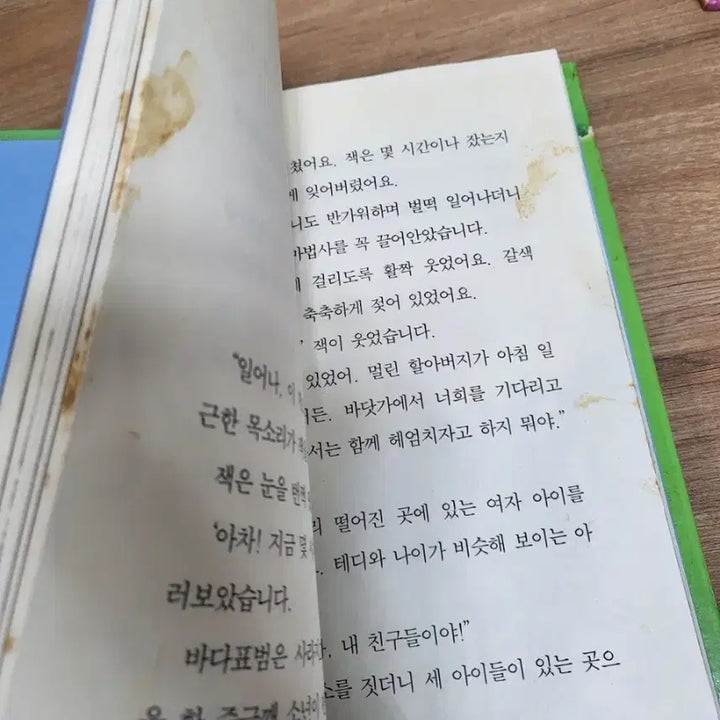 "일어나, 이
근한 목소리가
잭은 눈을 번쩍
'아차! 지금 몇
러보았습니다.
바다표범은 사라
을 한 중국계 소년이
쳤어요. 잭은 몇 시간이나 잤는지
에 잊어버렸어요.
니도 반가워하며 벌떡 일어나더니
마법사를 꼭 끌어안았습니다.
걸리도록 활짝 웃었어요. 갈색
축축하게 젖어 있었어요.
잭이 웃었습니다.
있었어. 멀린 할아버지가 아침 일
든. 바닷가에서 너희를 기다리고
서는 함께 헤엄치자고 하지 뭐야."
떨어진 곳에 있는 여자 아이를
테디와 나이가 비슷해 보이는 아
내 친구들이야!"
소를 짓더니 세 아이들이 있는 곳으